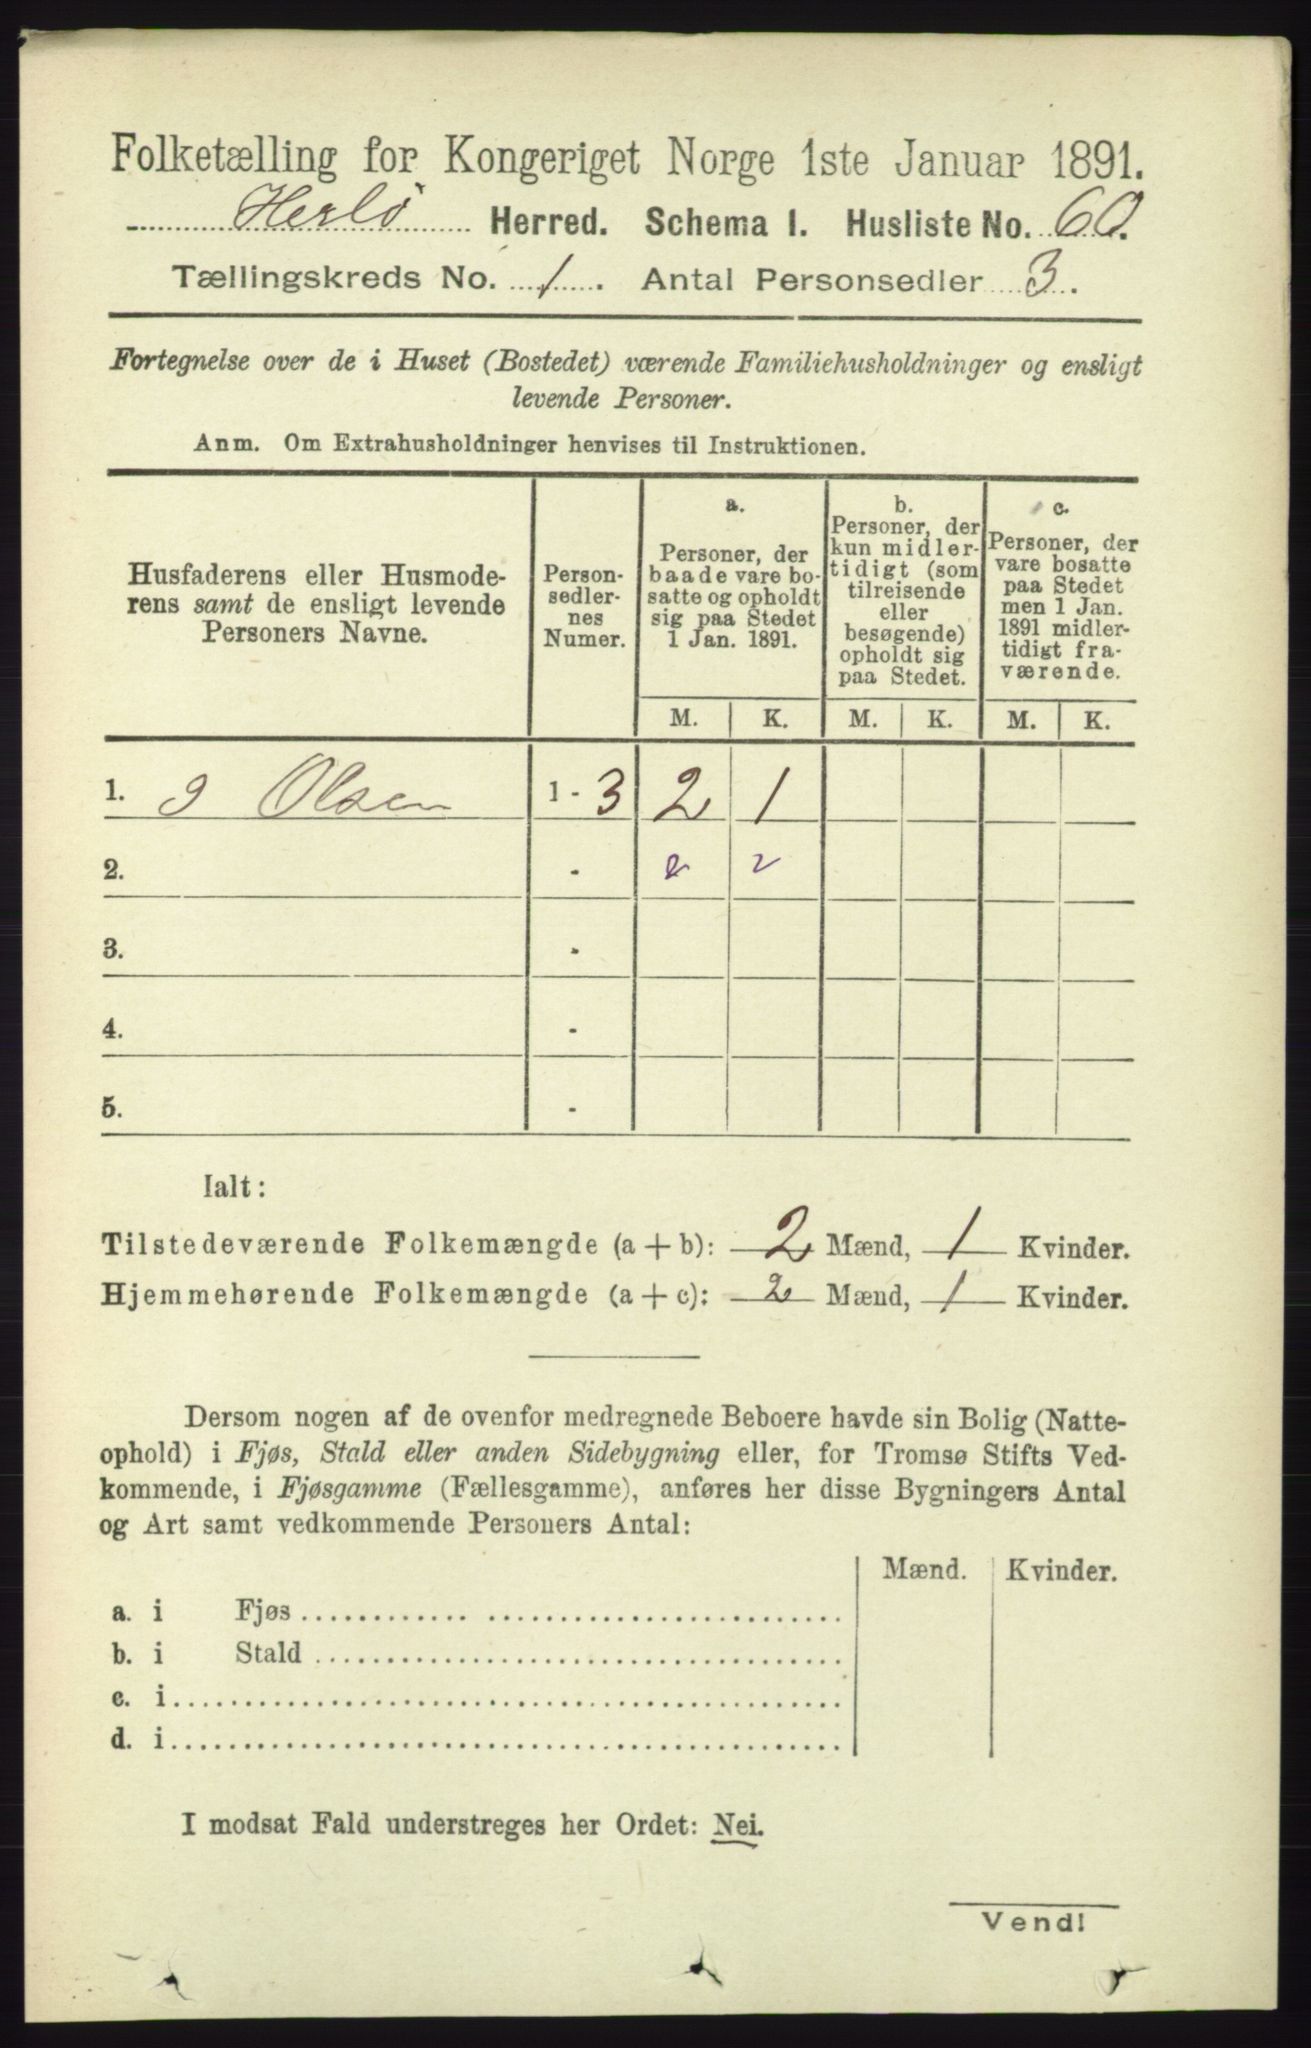 Folketælling for Kongeriget Norge 1ste Januar 1891.
Herlö Herred. Schema I. Husliste No. 60.
Tællingskreds No. 1. Antal Personsedler 3.
Fortegnelse over de i Huset (Bostedet) værende Familiehusholdninger og ensligt
levende Personer.
Anm. Om Extrahusholdninger henvises til Instruktionen.
Husfaderens eller Husmode-
rens samt de ensligt levende
Personers Navne.
Person-
sedler-
nes
Numer.
a.
Personer, der
baade vare bo-
satte og opholdt
sig paa Stedet
1 Jan. 1891.
b.
Personer, der
kun midler-
tidigt (som
tilreisende
eller
besøgende)
opholdt sig
paa Stedet.
c.
Personer, der
vare bosatte
paa Stedet
men 1 Jan.
1891 midler-
tidigt fra-
værende.
M. K. M. K. M. K.
1. Olsen 1 - 3 2 1
2. -
3. -
4. -
5. -
Ialt:
Tilstedeværende Folkemængde (a + b): 2 Mænd, 1 Kvinder.
Hjemmehørende Folkemængde (a + c): 2 Mænd, 1 Kvinder.
Dersom nogen af de ovenfor medregnede Beboere havde sin Bolig (Natte-
ophold) i Fjøs, Stald eller anden Sidebygning eller, for Tromsø Stifts Ved-
kommende, i Fjøsgamme (Fællesgamme), anføres her disse Bygningers Antal
og Art samt vedkommende Personers Antal:
Mænd. Kvinder.
a. i Fjøs
b. i Stald
c. i
d. i
I modsat Fald understreges her Ordet: Nei.
Vend!